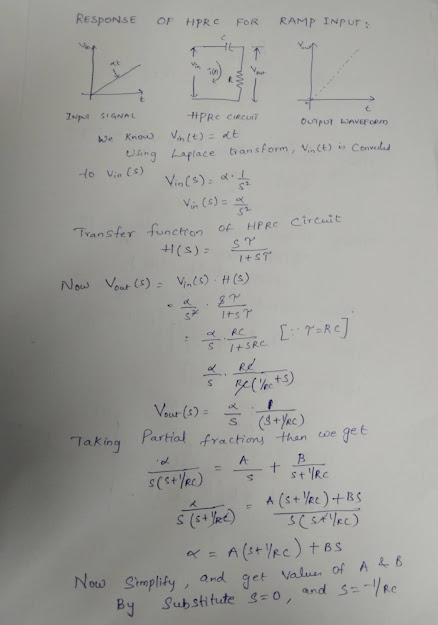 RESPONSE OF HPRC FOR RAMP INPUT:
Vin αt t
C Vin i(t) R Vout
Vout t
INPUT SIGNAL HPRC CIRCUIT OUTPUT WAVEFORM
We know Vin(t) = αt
Using Laplace transform, Vin(t) is Converted
to Vin(s) Vin(s) = α · 1/s²
Vin(s) = α/s²
Transfer function of HPRC Circuit
H(s) = sτ/(1+sτ)
Now Vout(s) = Vin(s) · H(s)
= α/s² · sτ/(1+sτ)
= α/s · RC/(1+SRC) [∵ τ=RC]
α/s · RC/(RC(1/RC+s))
Vout(s) = α/s · 1/(s+1/RC)
Taking Partial fractions then we get
α/(s(s+1/RC)) = A/s + B/(s+1/RC)
α/(s(s+1/RC)) = (A(s+1/RC)+BS)/(s(s+1/RC))
α = A(s+1/RC)+BS
Now Simplify, and get values of A & B
By Substitute S=0, and S=-1/RC